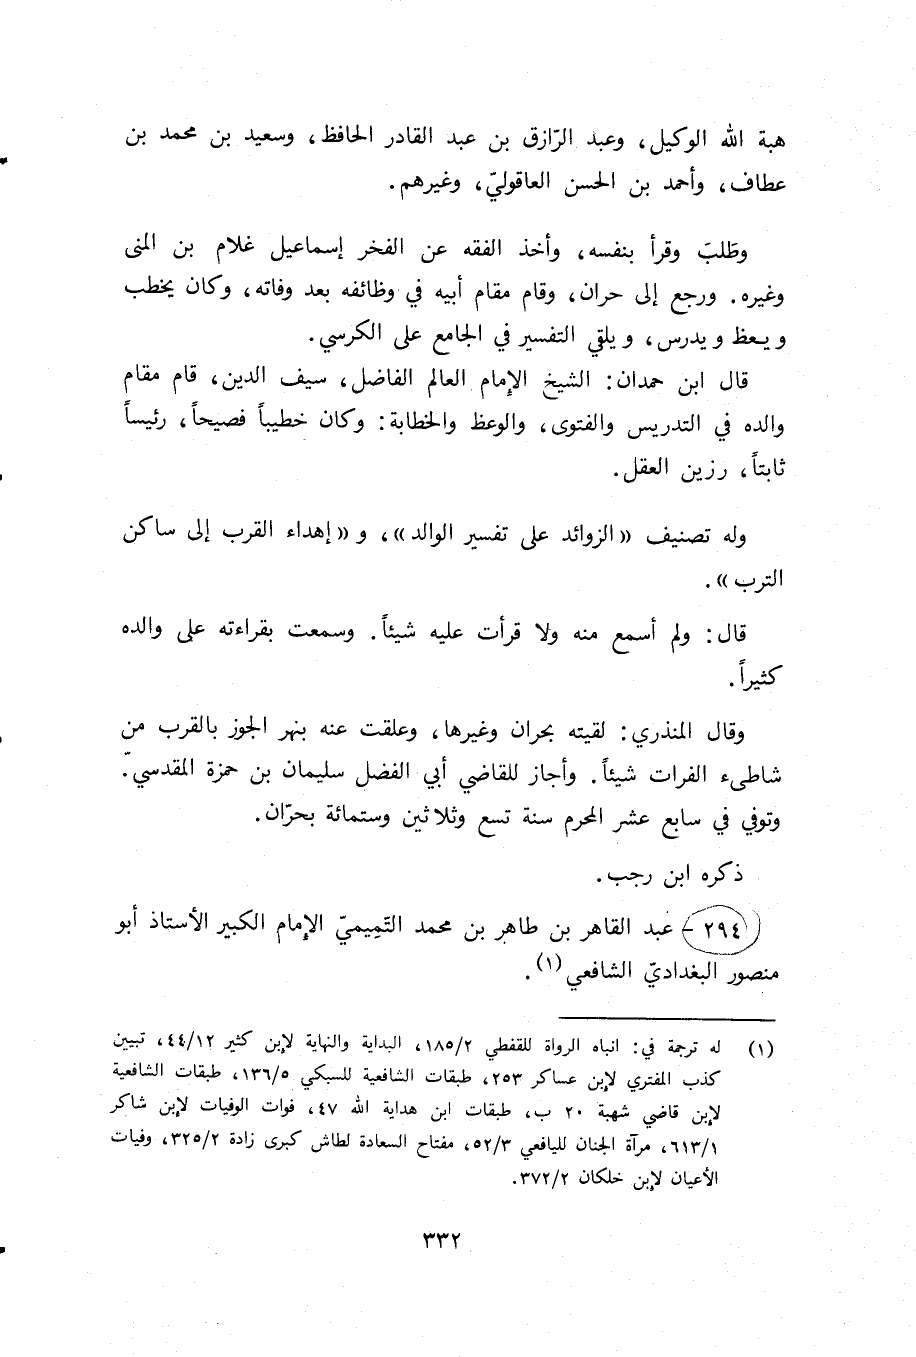 هبة الله الوكيل، وعبد الرّازق بن عبد القادر الحافظ، وسعيد بن محمد بن
عطاف، وأحمد بن الحسن العاقوليّ، وغيرهم.
وطَلبَ وقرأ بنفسه، وأخذ الفقه عن الفخر إسماعيل غلام بن المنى
وغيره. ورجع إلى حران، وقام مقام أبيه في وظائفه بعد وفاته، وكان يخطب
ويعظ ويدرس، ويلقي التفسير في الجامع على الكرسي.
قال ابن حمدان: الشيخ الإمام العالم الفاضل، سيف الدين، قام مقام
والده في التدريس والفتوى، والوعظ والخطابة: وكان خطيباً فصيحاً، رئيساً
ثابتاً، رزين العقل.
وله تصنيف «الزوائد على تفسير الوالد»، و «إهداء القرب إلى ساكن
الترب».
قال: ولم أسمع منه ولا قرأت عليه شيئاً. وسمعت بقراءته على والده
كثيراً.
وقال المنذري: لقيته بحران وغيرها، وعلقت عنه بنهر الجوز بالقرب من
شاطىء الفرات شيئاً. وأجاز للقاضي أبي الفضل سليمان بن حمزة المقدسيّ.
وتوفي في سابع عشر المحرم سنة تسع وثلاثين وستمائة بحرّان.
ذكره ابن رجب.
٢٩٤ - عبد القاهر بن طاهر بن محمد التَّمِيميّ الإمام الكبير الأستاذ أبو
منصور البغداديّ الشافعي(١).
(١) له ترجمة في: انباه الرواة للقفطي ١٨٥/٢، البداية والنهاية لابن كثير ٤٤/١٢، تبيين
كذب المفتري لإبن عساكر ٢٥٣، طبقات الشافعية للسبكي ١٣٦/٥، طبقات الشافعية
لإبن قاضي شهبة ٢٠ ب، طبقات ابن هداية الله ٤٧، فوات الوفيات لإبن شاكر
٦١٣/١، مرآة الجنان لليافعي ٥٢/٣، مفتاح السعادة لطاش كبرى زادة ٣٢٥/٢، وفيات
الأعيان لإبن خلكان ٣٧٢/٢.
٣٣٢